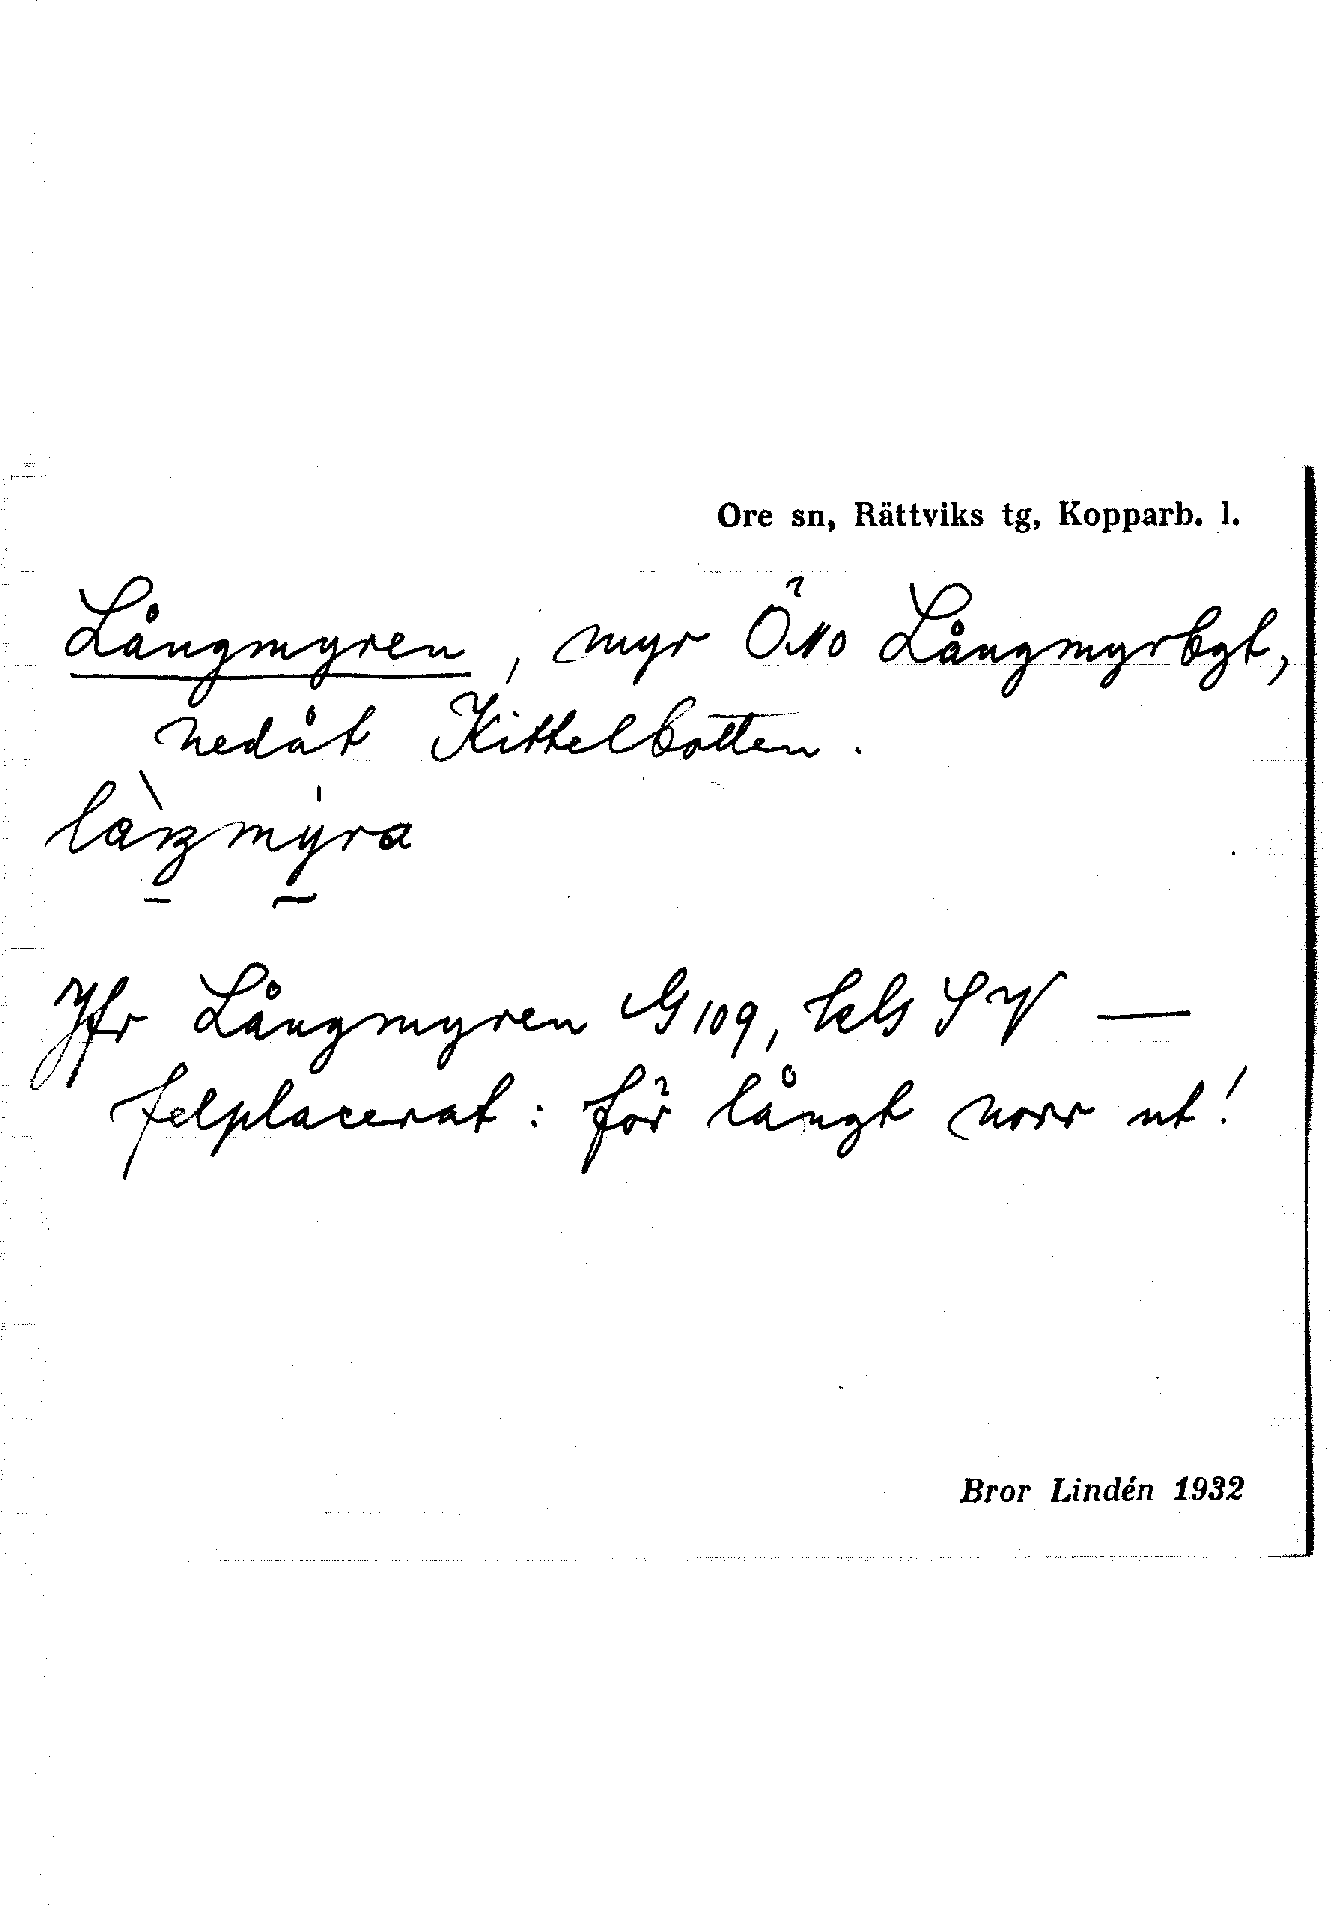 Ore sn, Rättviks tg, Kopparb. l.
Långmyren, myr Ö. no Långmyrbgt,
nedåt Kittelbotten.
Jfr Långmyren G 109, kls SV —
felplacerat: för långt norr ut!
Bror Lindén 1932